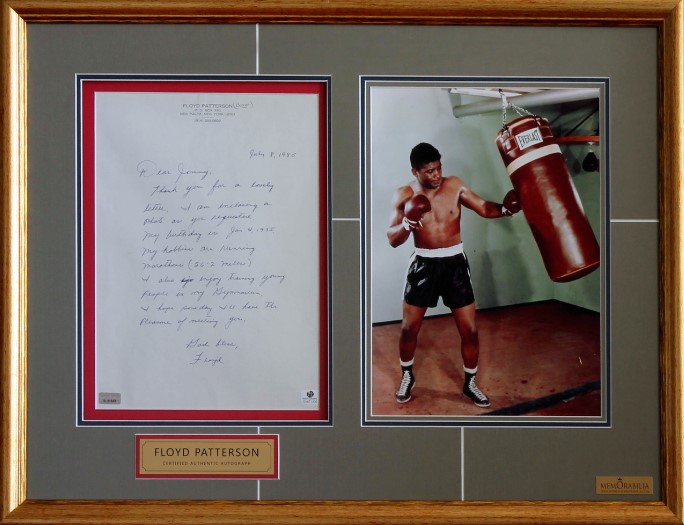 FLOYD PATTERSON
July 8, 1985
Dear Jimmy,
Thank you for a lovely
letter. I am enclosing a
photo as you requested.
My birthday is Jan 4, 1935.
My hobbies are running
marathons (26-2 miles)
I also enjoy training young
people in my Gymnasium
I hope someday I'll have the
pleasure of meeting you.
God Bless,
Floyd
EVERLAST
FLOYD PATTERSON
CERTIFIED AUTHENTIC AUTOGRAPH
MEMORABILIA